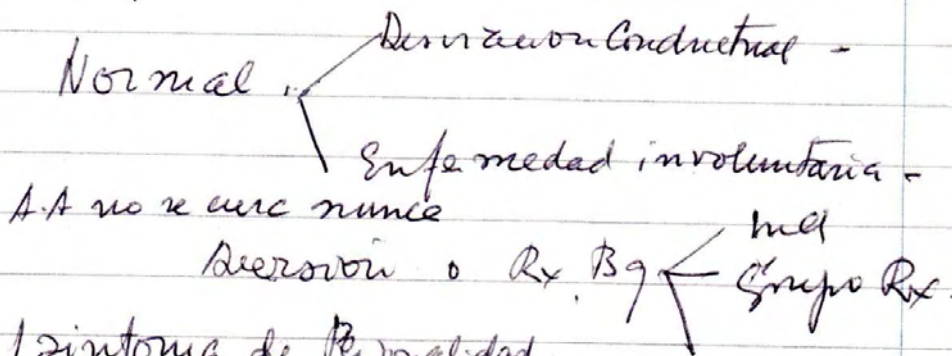 Desviacion Conductual -
Normal
Enfermedad involuntaria -
A.A no se cura nunca
Aversion o Rx. Bq
Grupo Rx
1 sintoma de Personalidad